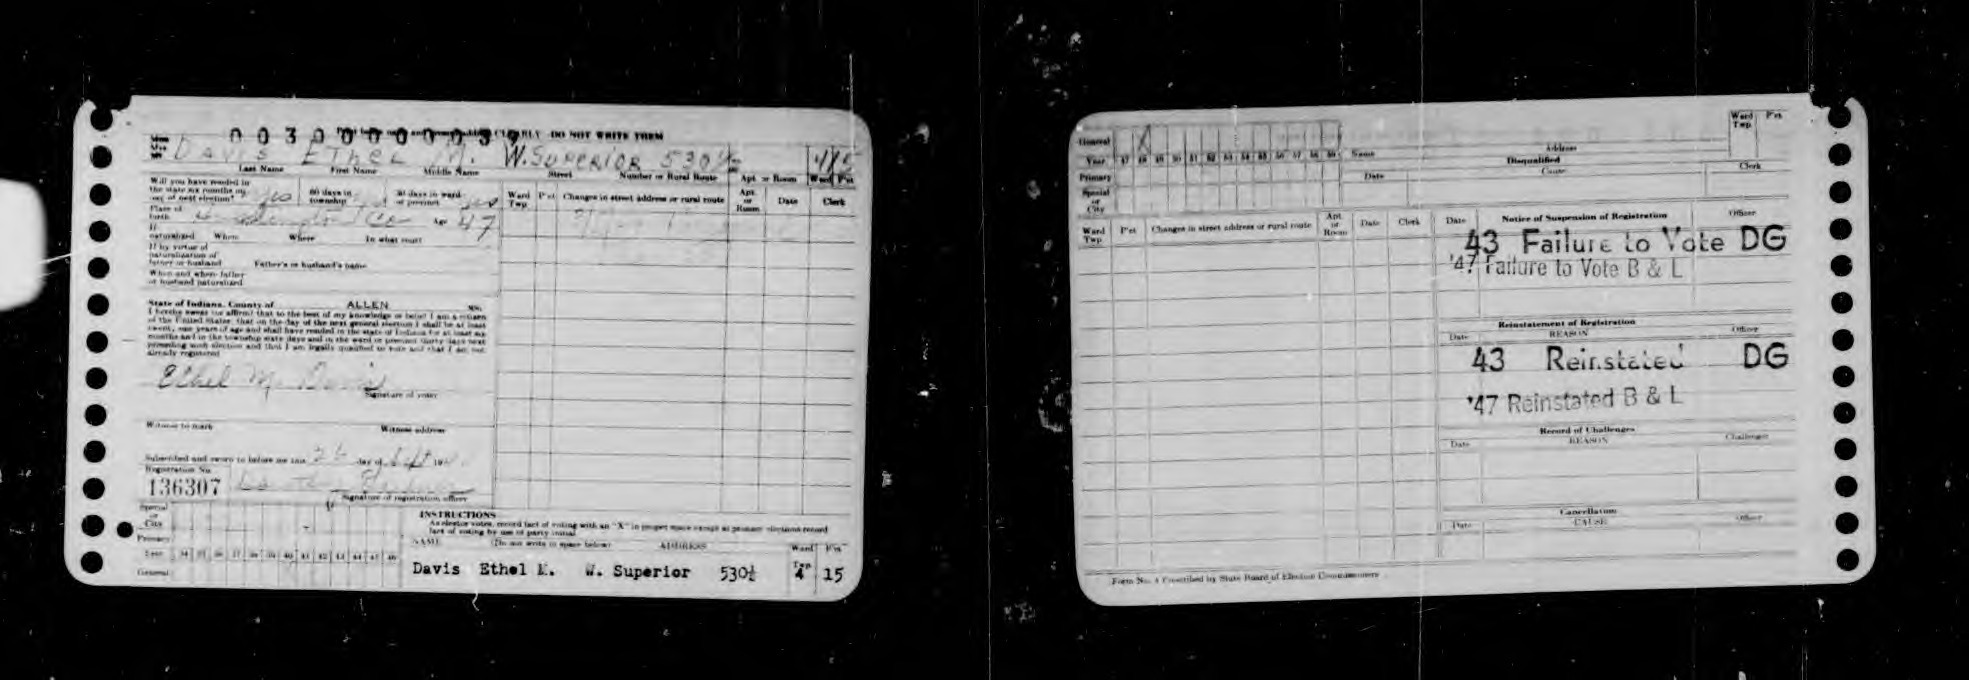 0030000003
CLEARLY - DO NOT WRITE THEM
Davis Ethel M. W. Superior 530½ 4/15
Last Name First Name Middle Name Street Number or Rural Route Apt. or Room Ward Pct
Will you have resided in
the state six months on
day of next election? Yes 60 days in township 30 days in ward or precinct Yes
Ward Twp. P'ct Changes in street address or rural route Apt. or Room Date Clerk
Place of birth Co Age 47
If naturalized When Where In what court
If by virtue of
naturalization of
father or husband Father's or husband's name
When and where father
or husband naturalized
State of Indiana, County of ALLEN ss:
I hereby swear (or affirm) that to the best of my knowledge or belief I am a citizen
of the United States; that on the day of the next general election I shall be at least
twenty-one years of age and shall have resided in the state of Indiana for at least six
months and in the township sixty days and in the ward or precinct thirty days next
preceding such election and that I am legally qualified to vote and that I am not
already registered
Ethel M. Davis
Signature of voter
Witness to mark Witness address
Subscribed and sworn to before me this 26 day of Sept 19
Registration No.
136307
Signature of registration officer
Special
or
City
Primary
Year 34 35 36 37 38 39 40 41 42 43 44 45 46
General
INSTRUCTIONS
As elector votes, record fact of voting with an "X" in proper space except at primary elections record
fact of voting by use of party initial
NAME (Do not write in space below) ADDRESS Ward Twp P'ct
Davis Ethel M. W. Superior 530½ 4 15
General X
Ward Twp. P'ct
Year 47 48 49 50 51 52 53 54 55 56 57 58 59 Name Address
Primary
Disqualified
Date Cause Clerk
Special
or
City
Ward Twp. P'ct Changes in street address or rural route Apt. or Room Date Clerk
Date Notice of Suspension of Registration Officer
43 Failure to Vote DG
'47 Failure to Vote B & L
Reinstatement of Registration
Date REASON Officer
43 Reinstated DG
'47 Reinstated B & L
Record of Challenges
Date REASON Challenger
Cancellation
Date CAUSE Officer
Form No. 4 Prescribed by State Board of Election Commissioners